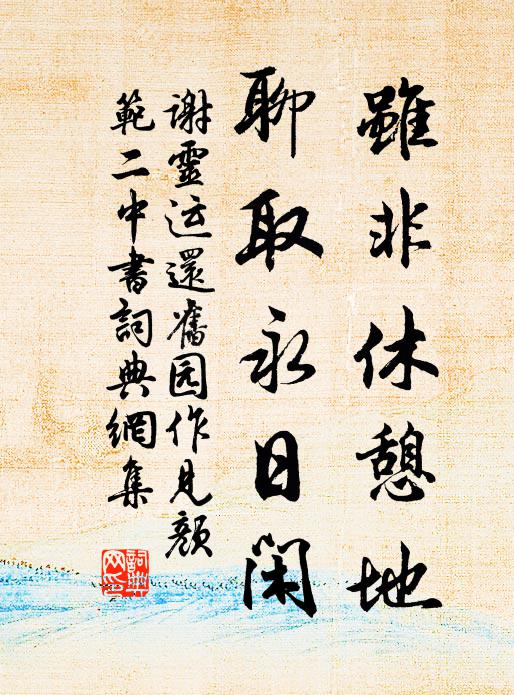 雖非休憩地
聊取永日閑
謝靈运還舊园作見顏
範二中書詞典網集